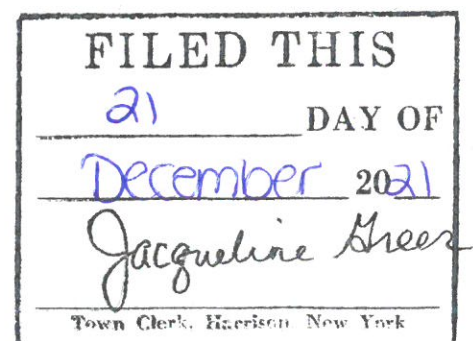 FILED THIS
21 DAY OF
December 2021
Jacqueline Greer
Town Clerk, Harrison New York